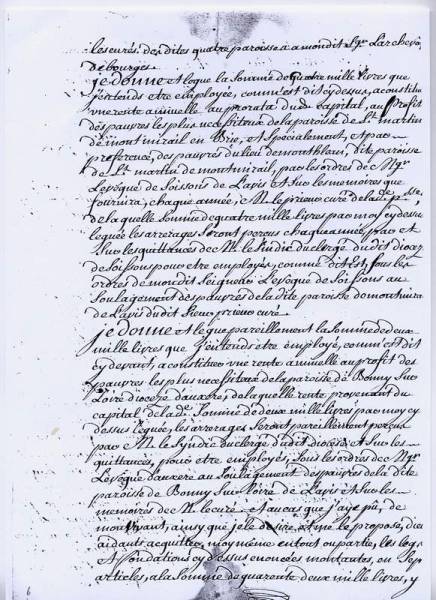 les curés desdites quatre paroisse à a mondit Sgr. Larchevê
de bourges
je donne et legue la Somme de quatre mille livres que
j'entends etre employée, comme est dit cy dessus, a constitu
une rente annuelle au prorata dud. Capital, au profit
des pauvres les plus necessiteux de la paroisse de St. martin
de montmirail en Brie, et Specialement, et par
preference, des pauvres du lieu de montblau, dite paroisse
de St. martin de montmirail, par les ordres de Mgr.
L'evêque de Soissons de l'avis et Sur les memoires que
fournira, chaque année, Mr. le prieur curé de lade. psse,
de laquelle Somme de quatre mille livres par moy cy dessus
leguée les arrerages Seront perçus chaque année, par et
Sur les quittances de Mr. le Sindic du clergé dudit dioceze
de Soissons pour etre employés, comme dit Est, Sous les
ordres de mondit Seigneur L'evêque de Soissons au
Soulagement des pauvres de ladite paroisse de montmirai
de l'avis dudit Sieur prieur curé
je donne et legue pareillement la Somme de deux
mille livres que j'entends etre employé, comme est dit
cy devant, a constituer une rente annuelle au profit des
pauvres les plus necessiteux de la paroisse de Bonny Sur
Loire dioceze d'auxerre, de laquelle rente provenant du
capital de lade. Somme de deux mille livres par moy cy
dessus leguée, les arrerages Seront pareillement perçus
par Mr. le Syndic du clergé dudit dioceze et Sur les
quittances, pour etre employés, Sous les ordres de Mgr.
L'evêque d'auxerre au Soulagement des pauvres de la dite
paroisse de Bonny Sur loire de l'avis et Sur les
memoires de Mr. le curé et au cas que j'aye pû, de
mon vivant, ainsy que je le desire et me le propose, dieu
aidant acquitter, moy même en tout ou partie, les legs
et fondations cy dessus enoncées montantes, en Sept
articles, a la Somme de quarente deux mille livres, y